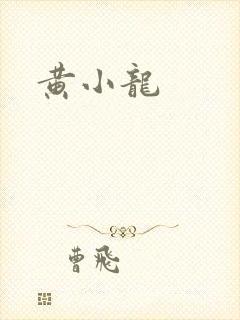 黄小龍
曹飛